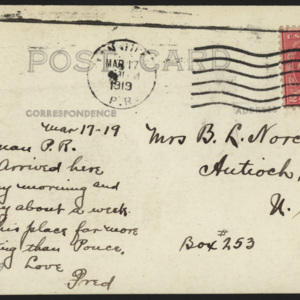 POST CARD
MAR 17
1919
P.R.
CORRESPONDENCE
ADDRESS
Mar 17-19
man P.R.
Arrived here
morning and
about 2 week
this place far more
ting than Ponce.
Love
Fred
Mrs B. L. Norc
Antioch,
U.
Box #253